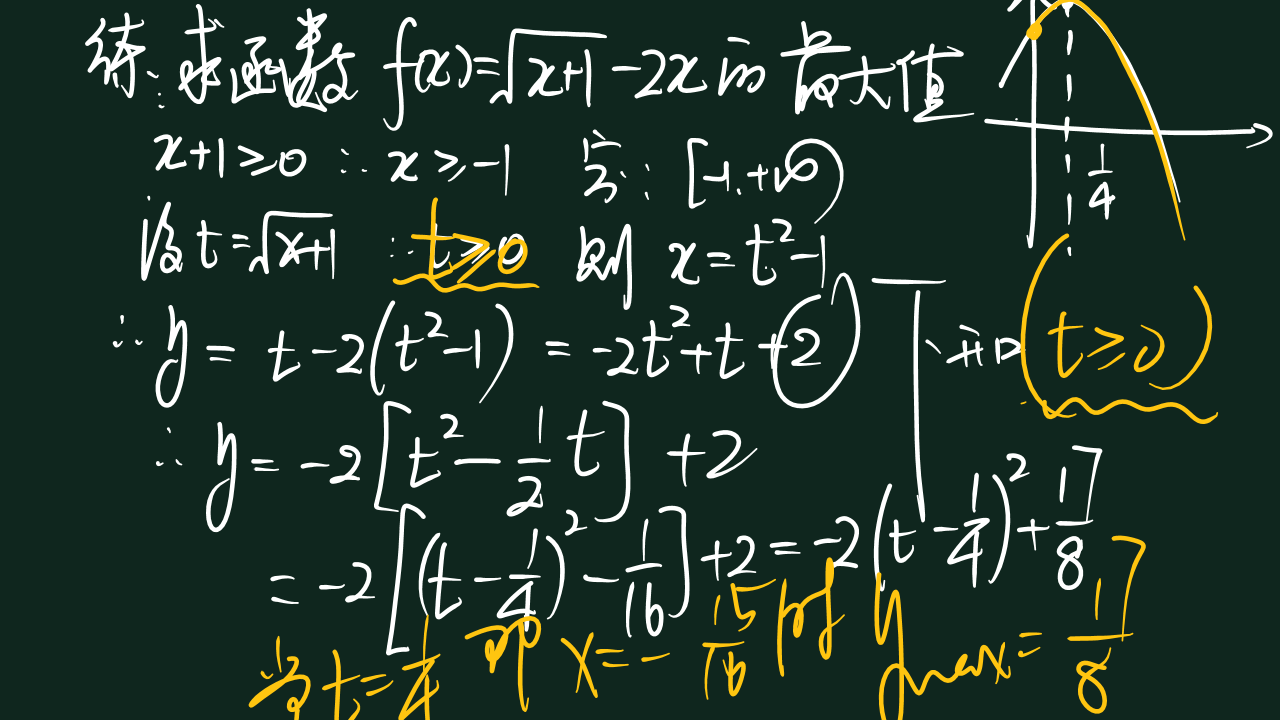 练:求函数 f(x)=√(x+1)-2x 的最大值
x+1≥0 ∴ x≥-1 定: [-1,+∞)
设 t=√(x+1) ∴ t≥0 则 x=t²-1
∴ y = t-2(t²-1) = -2t²+t+2
(t≥0)
∴ y = -2[t²-1/2 t]+2
= -2[(t-1/4)²-1/16]+2=-2(t-1/4)²+17/8
当t=1/4 即 x=-15/16 时 ymax=17/8
1/4